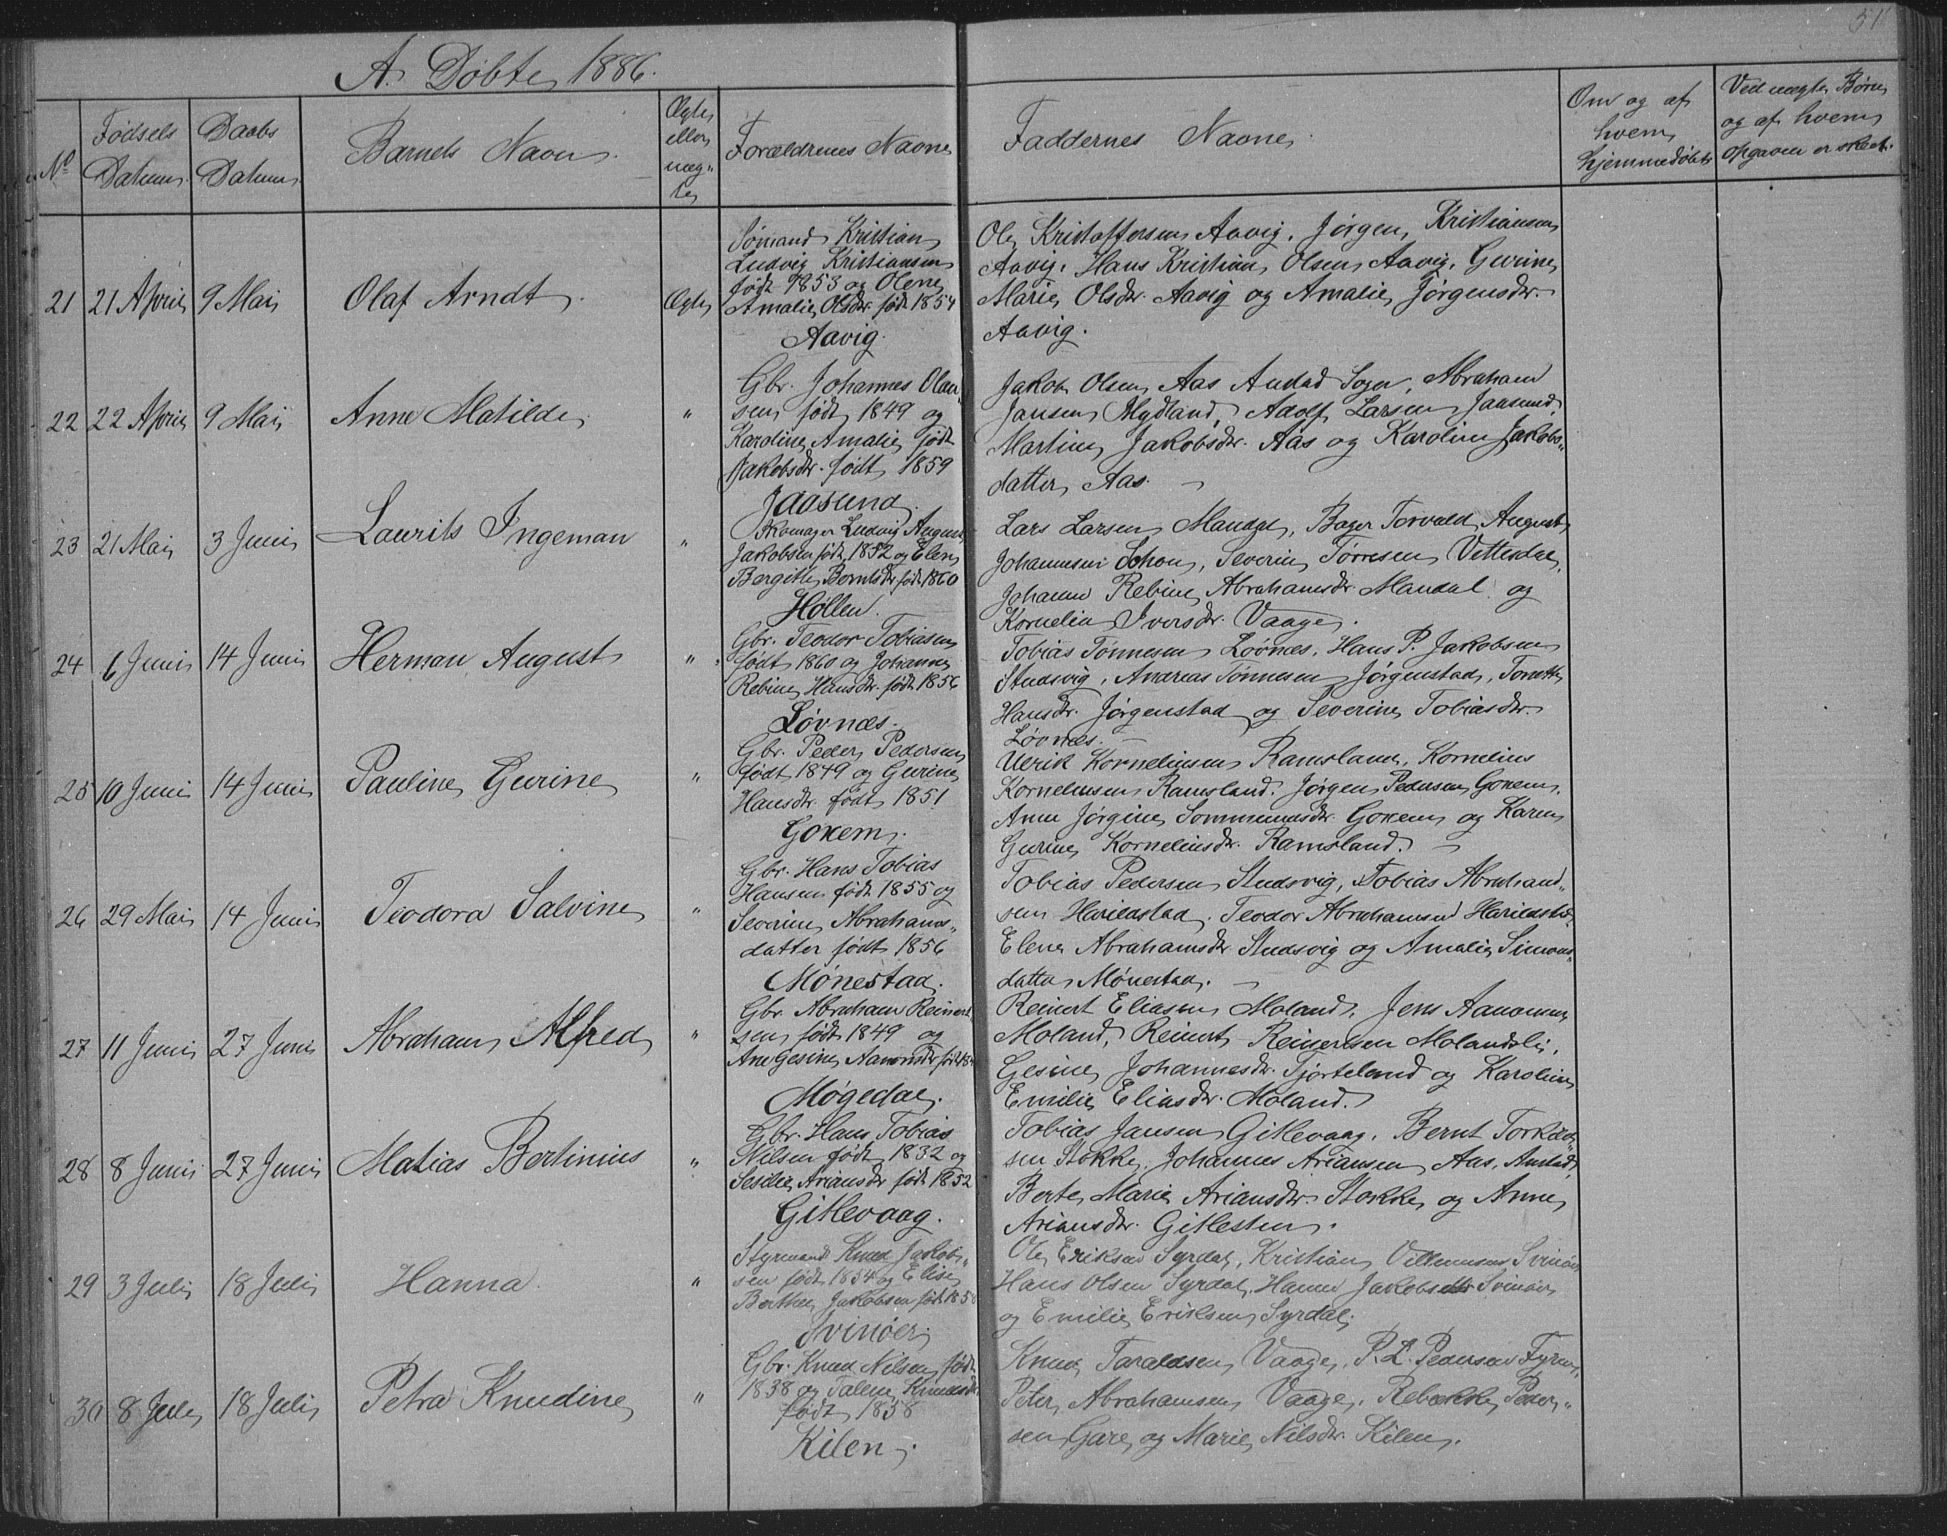 51
A. Døbte 1886.
No
Fødsels Datum.
Daabs Datum.
Barnets Navn.
Ægte eller uægte
Forældrenes Navne
Faddernes Navne
Om og af hvem hjemmedøbt
Ved uægte Børn og af hvem Opgaven er skeet.
21 21 April 9 Mai Olaf Arndt. Ægte
Sømand Kristian
Ludvig Kristiansen
født 1853 og Olene
Amalie Olsdr. født 1854
Aavig.
Ole Kristoffersen Aavig. Jørgen Kristiansen
Aavig. Hans Kristian Olsen Aavig. Gurine
Marie Olsdr. Aavig og Amalie Jørgensdr.
Aavig.
22 22 April 9 Mai Anne Matilde "
Gbr. Johannes Olau-
sen født 1849 og
Karoline Amalie født
Jakobsdr. født 1859
Jaasund.
Jakob Olsen Aas Audnd Sogn, Abraham
Jansen Mydland, Adolf Larsen Jaasund,
Martine Jakobsdr. Aas og Karoline Jakobs-
datter Aas.
23 21 Mai 3 Juni Laurits Ingeman "
Skomager Ludvig August
Jakobsen født 1852 og Elen
Bergitte Berntsdr. født 1860
Høllen.
Lars Larsen Mandal, Bager Torvald August
Johannesen Schou, Severin Tørresen Vittesdal,
Johanne Rebine Abrahamsdr. Mandal og
Kornelia Iversdr. Vaage.
24 6 Juni 14 Juni Herman August "
Gbr. Teodor Tobiasen
født 1860 og Johanne
Rebine Hansdr. født 1856
Løvnæs.
Tobias Tønnesen Løvnæs, Hans P. Jakobsen
Studsvig, Andreas Tønnesen Jørgenstad, Tonette
Hansdr. Jørgenstad og Severine Tobiasdr.
Løvnæs.
25 10 Juni 14 Juni Pauline Gurine "
Gbr. Peder Pedersen
født 1849 og Gurine
Hansdr. født 1851
Goxem.
Ulrik Korneliusen Ramsland, Kornelius
Korneliussen Ramsland. Jørgen Pedersen Goxem.
Anne Jørgine Sommunnsdr. Goxem og Karen
Gurine Korneliusdr. Ramsland.
26 29 Mai 14 Juni Teodora Salvine "
Gbr. Hans Tobias
Hansen født 1855 og
Severine Abrahams-
datter født 1856
Mønestad.
Tobias Pedersen Studsvig, Tobias Abraham-
sen Harildstad. Teodor Abrahamsen Harildstad
Elene Abrahamsdr. Studsvig og Amalie Simons-
datter Mønestad.
27 11 Juni 27 Juni Abraham Alfred "
Gbr. Abraham Reinert-
sen født 1849 og
Ane Gesine Aanonsdr. født
Møgedal.
Reinert Eliasen Moland, Jens Aanonsen
Moland, Reinert Reinertsen Molandsli,
Gesine Johannesdr. Tjorteland og Karoline
Emilie Eliasdr. Moland.
28 8 Juni 27 Juni Matias Bertinius "
Gbr. Hans Tobias
Nilsen født 1832 og
Sesilie Ariansdr. født 1852
Gitlevaag.
Tobias Jansen Gitlevaag, Bernt Torkild-
sen Stokke, Johannes Ariansen Aas, Austad,
Berte Marie Ariansdr. Stokke og Anne
Ariansdr. Gitlesten.
29 3 Juli 18 Juli Hanna. "
Styrmand Knud Jakob-
sen født 1854 og Elise
Berthe Jakobsen født
Svinøer.
Ole Eriksen Syrdal, Kristian Villumsen Svinøer
Hans Olsen Syrdal, Hanne Jakobsdtr. Svinøer
og Emilie Eriksen Syrdal.
30 8 Juli 18 Juli Petra Knudine "
Gbr. Knud Nilsen født
1838 og Talene Knudsdr.
født 1858
Kilen.
Knud Taraldsen Vaage, P. L. Pedersen
Peter Abrahamsen Vaage. Rebekke Peder-
sen Gare og Marie Nilsdr. Kilen.